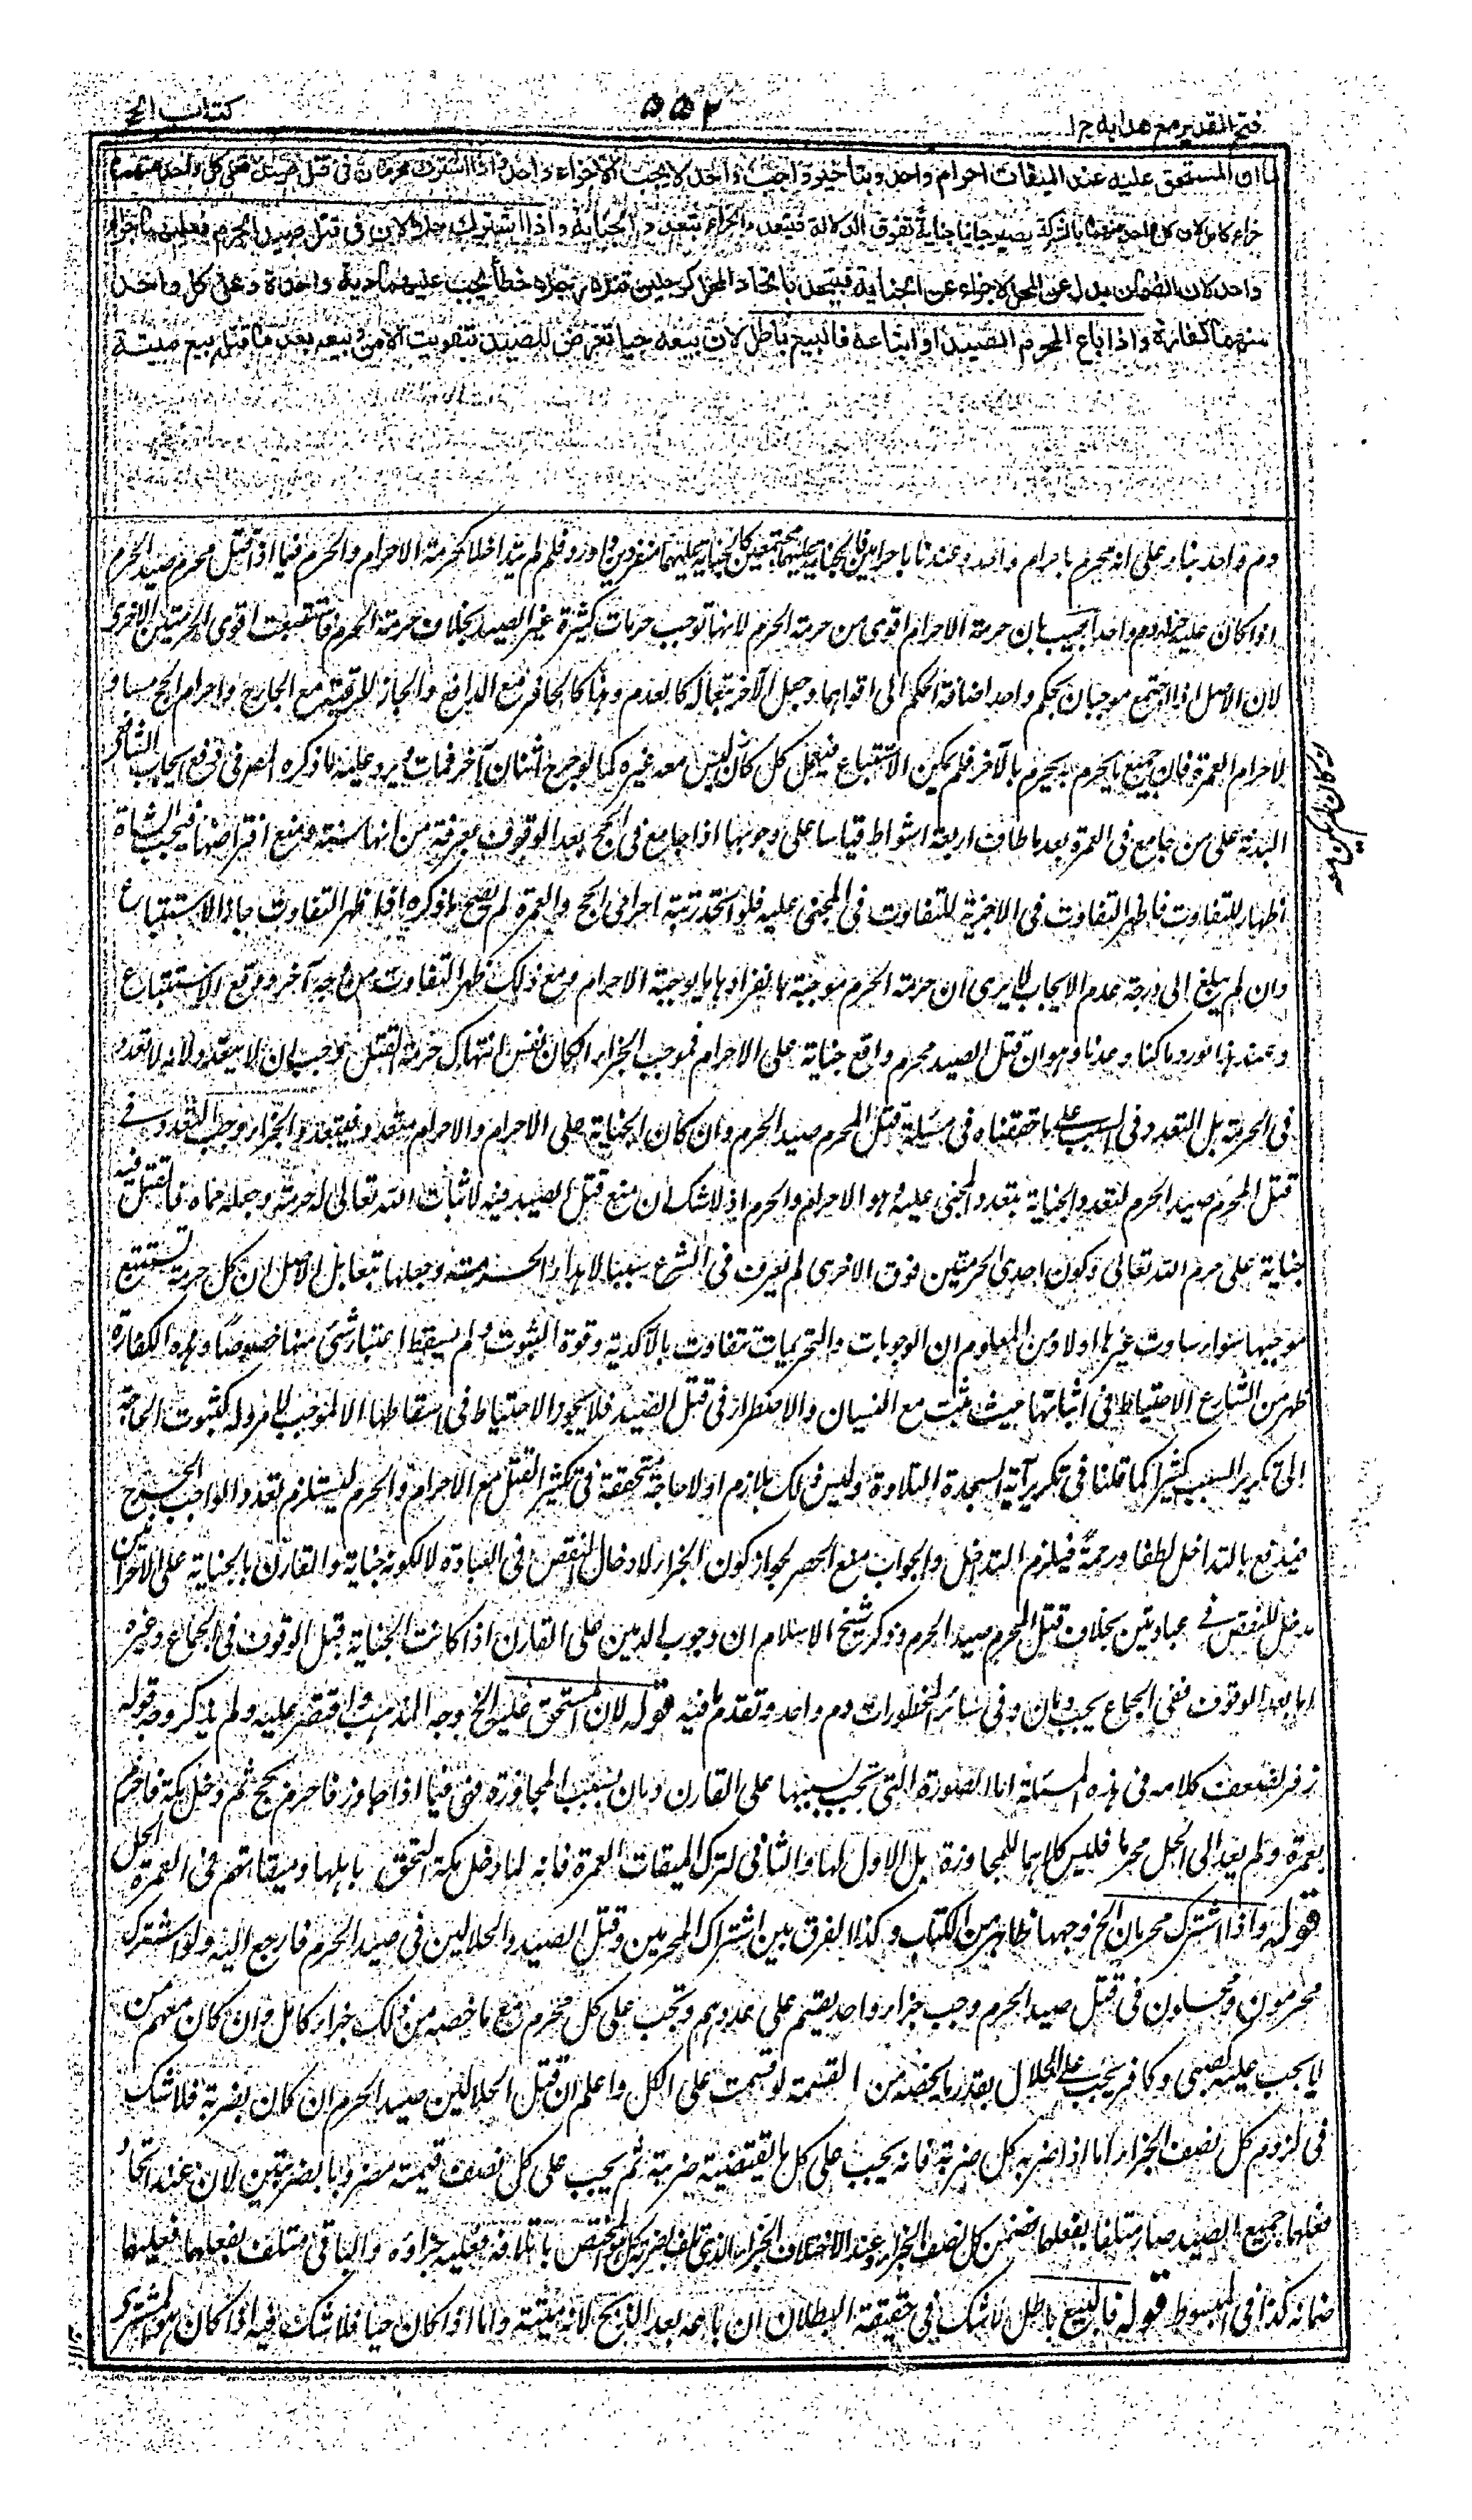 فتح القدير مع هدايه ج ا
٥٥٢
كتاب الحج
لما ان المستحق عليه عند الميقات احرام واحد وبتاخير واجب واحد لا يجب الا جزاء واحد واذا اشترك محرمان في قتل صيد فعلى كل واحد منهما
جزاء كامل لان كل واحد منهما بالشركة يصير جانيا جناية تفوق الدلالة فيتعدد الجزاء بتعدد الجناية واذا اشترك حلالان في قتل صيد الحرم فعليهما جزاء
واحد لان الضمان بدل عن المحل لا جزاء عن الجناية فيتحد باتحاد المحل كرجلين قتلا رجلا خطأ يجب عليهما دية واحدة وعلى كل واحد
منهما كفارة واذا باع المحرم الصيد او ابتاعه فالبيع باطل لان بيعه حيا تعرض للصيد بتفويت الامن وبيعه بعد ما قتله بيع ميتة
دم واحد بناء على انه محرم باحرام واحد وعندنا باحرامين فالجناية عليهما مجتمعين كالجناية عليهما منفردين فاورد فلم لم يتداخلا كحرمة الاحرام والحرم فيما اذا قتل محرم صيد الحرم
اذا كان عليه دم واحد اجيب بان حرمة الاحرام اقوى من حرمة الحرم لانها توجب حرمات كثيرة غير الصيد بخلاف حرمة الحرم فاستتبعت اقوى الحرمتين الاخرى
لان الاصل اذا اجتمع موجبان بحكم واحد اضافة الحكم الى اقواهما وجعل الآخر تبعا له كالعدم وهنا كالحافر مع الدافع والجاز للرقبة مع الجارح واحرام الحج مساو
لاحرام العمرة فان جميع ما يحرم به يحرم بالآخر فلم يمكن الاستتباع فيجعل كل كان ليس معه غيره كما لو جرح اثنان آخر فمات ويرد عليه ما ذكره المصرفى دفع ايجاب الشافعي
البدنة على من جامع في العمرة بعد ما طاف اربعة اشواط قياسا على وجوبها اذا جامع في الحج بعد الوقوف بعرفة من انها سنة ومنع افتراضها فيجب الشاة
اظهارا للتفاوت فاظهر التفاوت في الاجزية للتفاوت في المجنى عليه فلو اتحد رتبة احرامى الحج والعمرة لم يصح ما ذكره اذا ظهر التفاوت جاز الاستتباع
وان لم يبلغ الى درجة عدم الايجاب الا يرى ان حرمة الحرم موجبة بانفرادها ما يوجبه الاحرام ومع ذلك ظهر التفاوت من وجه آخر ووقع الاستتباع
وعند هذا نورد ما كنا وعدنا وهو ان قتل الصيد محرم واقع جناية على الاحرام فموجب الجزاء ان كان نفس انتهاك حرمة القتل وجب ان لا يتعدد لانه لا تعدد
في الحرمة بل التعدد في السبب على ما حققناه في مسئلة قتل المحرم صيد الحرم وان كان الجناية على الاحرام والاحرام متعدد فيتعدد الجزاء وجب التعدد في
قتل المحرم صيد الحرم لتعدد الجناية بتعدد المجنى عليه وهو الاحرام والحرم اذ لا شك ان منع قتل الصيد فيه لاثبات الله تعالى له حرمته وجعله حماه فالقتل فيه
جناية على حرم الله تعالى وكون احدى الحرمتين فوق الاخرى لم يعرف في الشرع سببا لاهدار الحرمة وجعلها تبعا بل الاصل ان كل حرمة تستتبع
موجبها سواء ساوت غيرها او لا ومن المعلوم ان الوجوبات والتحريمات تتفاوت بالآكدية وقوة الثبوت ولم يسقط اعتبار شئ منها خصوصا وهذه الكفارة
ظهر من الشارع الاحتياط في اثباتها حيث ثبت مع النسيان والاضطرار في قتل الصيد فلا يجوز الاحتياط في اسقاطها الا لموجب لا مرد له كثبوت الحاجة
الى تكرير السبب كثيرا كما قلنا في تكرير آية السجدة التلاوة وليس ذلك بلازم اولا حاجة متحققة في تكثير القتل مع الاحرام والحرم ليستلزم تعدد الواجب الحرج
فيندفع بالتداخل لطفا ورحمة فيلزم التداخل والجواب منع الحصر لجواز كون الجزاء لادخال النقص في العبادة لا لكونه جناية والقارن بالجناية على الاحرامين
مدخل للنقص في عبادتين بخلاف قتل المحرم صيد الحرم وذكر شيخ الاسلام ان وجوب الدمين على القارن اذا كانت الجناية قبل الوقوف في الجماع وغيره
اما بعد الوقوف ففي الجماع يجب دمان وفي سائر المحظورات دم واحد وتقدم ما فيه قوله لان المستحق عليه الخ وجه المذهب واقتصر عليه ولم يذكر وجه قوله
زفر لضعف كلامه في هذه المسئلة اما الصورة التي يجب بسببها على القارن دمان بسبب المجاوزة فهى فيما اذا جاوز فاحرم بحج ثم دخل مكة فاحرم
بعمرة ولم يعد الى الحل محرما فليس كلاهما للمجاوزة بل الاول لها والثاني لترك الميقات العمرة فانه لما دخل مكة التحق باهلها وميقاتهم في العمرة الحل
قوله واذا اشترك محرمان الخ وجهها ظاهر من الكتاب وكذا الفرق بين اشتراك المحرمين وقتل الصيد والحلالين في صيد الحرم فارجع اليه ولو اشترك
محرمون ومحلون في قتل صيد الحرم وجب جزاء واحد يقسم على عددهم ويجب على كل محرم مع ما خصه من ذلك جزاء كامل وان كان معهم من
لا يجب عليه كصبى وكافر يجب على الحلال بقدر ما يخصه من القسمة لو قسمت على الكل واعلم ان قتل الحلالين صيد الحرم ان كان بضربة فلا شك
في لزوم كل نصف الجزاء اما اذا ضربه كل ضربة فانه يجب على كل ما يقتضيه ضربته ثم يجب على كل نصف قيمته مضروبا بضربتين لان عند اتحاد
فعلهما جميع الصيد صار متلفا بفعلهما فضمن كل نصف الجزاء وعند الاختلاف الجزاء الذي تلف بضربة كل هو المختص باتلافه فعليه جزاؤه والباقي متلف بفعلهما فعليهما
ضمانه كذا في المبسوط قوله فالبيع باطل لا شك في حقيقة البطلان ان باعه بعد الذبح لانه ميتة واما اذا كان حيا فلا شك فيه اذا كان هو المشترى